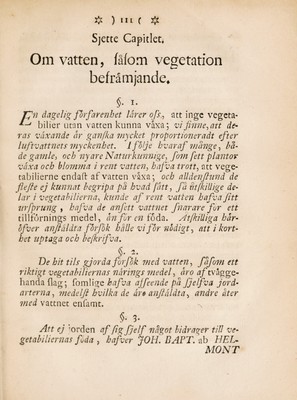 ✲ ) 111 ( ✲
Sjette Capitlet.
Om vatten, såsom vegetation
befrämjande.
§. 1.
En dagelig förfarenhet lärer oss, att inge vegeta-
bilier utan vatten kunna växa; vi finne, att de-
ras växande är ganska mycket proportioneradt efter
luftvattnets myckenhet. I följe hvaraf månge, bå-
de gamle, och nyare Naturkunnige, som sett plantor
växa och blomma i rent vatten, hafva trott, att vege-
tabilierne endaft af vatten växa; och alldenstund de
fleste ej kunnat begripa på hvad sätt, så utskillige de-
lar i vegetabilierna, kunde af rent vatten hafva sitt
ursprung, hafva de ansett vattnet snarare för ett
tillförnings medel, än för en föda. Atskilliga här-
öfver anstäldta försök hålle vi för nödigt, att i kort-
het uptaga och beskrifva.
§. 2.
De hit tils gjorda försök med vatten, såsom ett
riktigt vegetabiliernas närings medel, äro af tvågge-
handa slag; somlige hafva afseende på sjelfva jord-
arterna, medelst hvilka de äro anstäldta, andre åter
med vattnet ensamt.
§. 3.
Att ej jorden af sig sjelf något bidrager till ve-
getabiliernas föda, hafver JOH. BAPT. ab HEL-
MONT